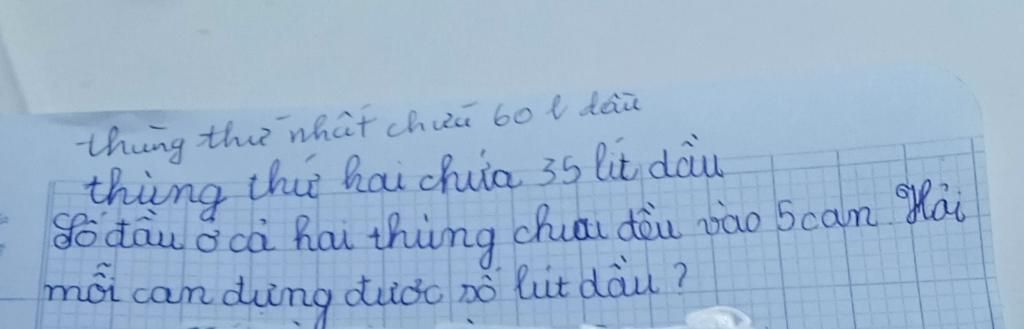 thùng thứ nhất chứa 60 l dầu
thùng thứ hai chứa 35 lít dầu
Số dầu ở cả hai thùng chia đều vào 5 can. Hỏi
mỗi can dựng được số lít dầu?